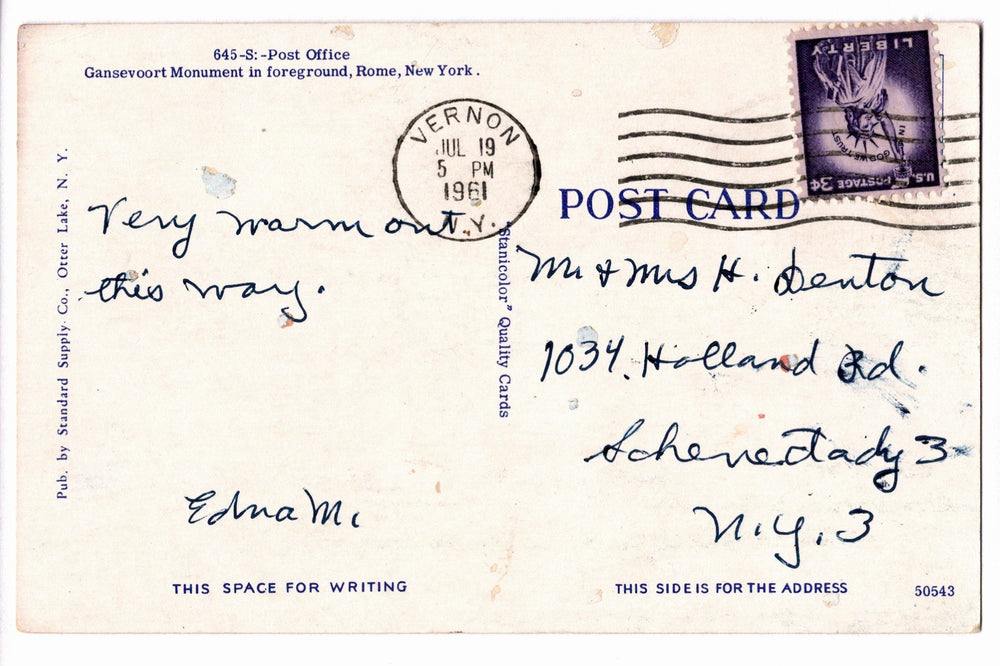 645-S:-Post Office
Gansevoort Monument in foreground, Rome, New York.
VERNON
JUL 19
5 PM
1961
N.Y.
LIBERTY
IN GOD WE TRUST
U.S. POSTAGE 3¢
POST CARD
Very warm out
this way.
Edna M.
Mr & Mrs H. Denton
1034 Holland Rd.
Schenectady 3
N.Y. 3
Pub. by Standard Supply Co., Otter Lake, N. Y.
"Stanicolor" Quality Cards
THIS SPACE FOR WRITING
THIS SIDE IS FOR THE ADDRESS
50543